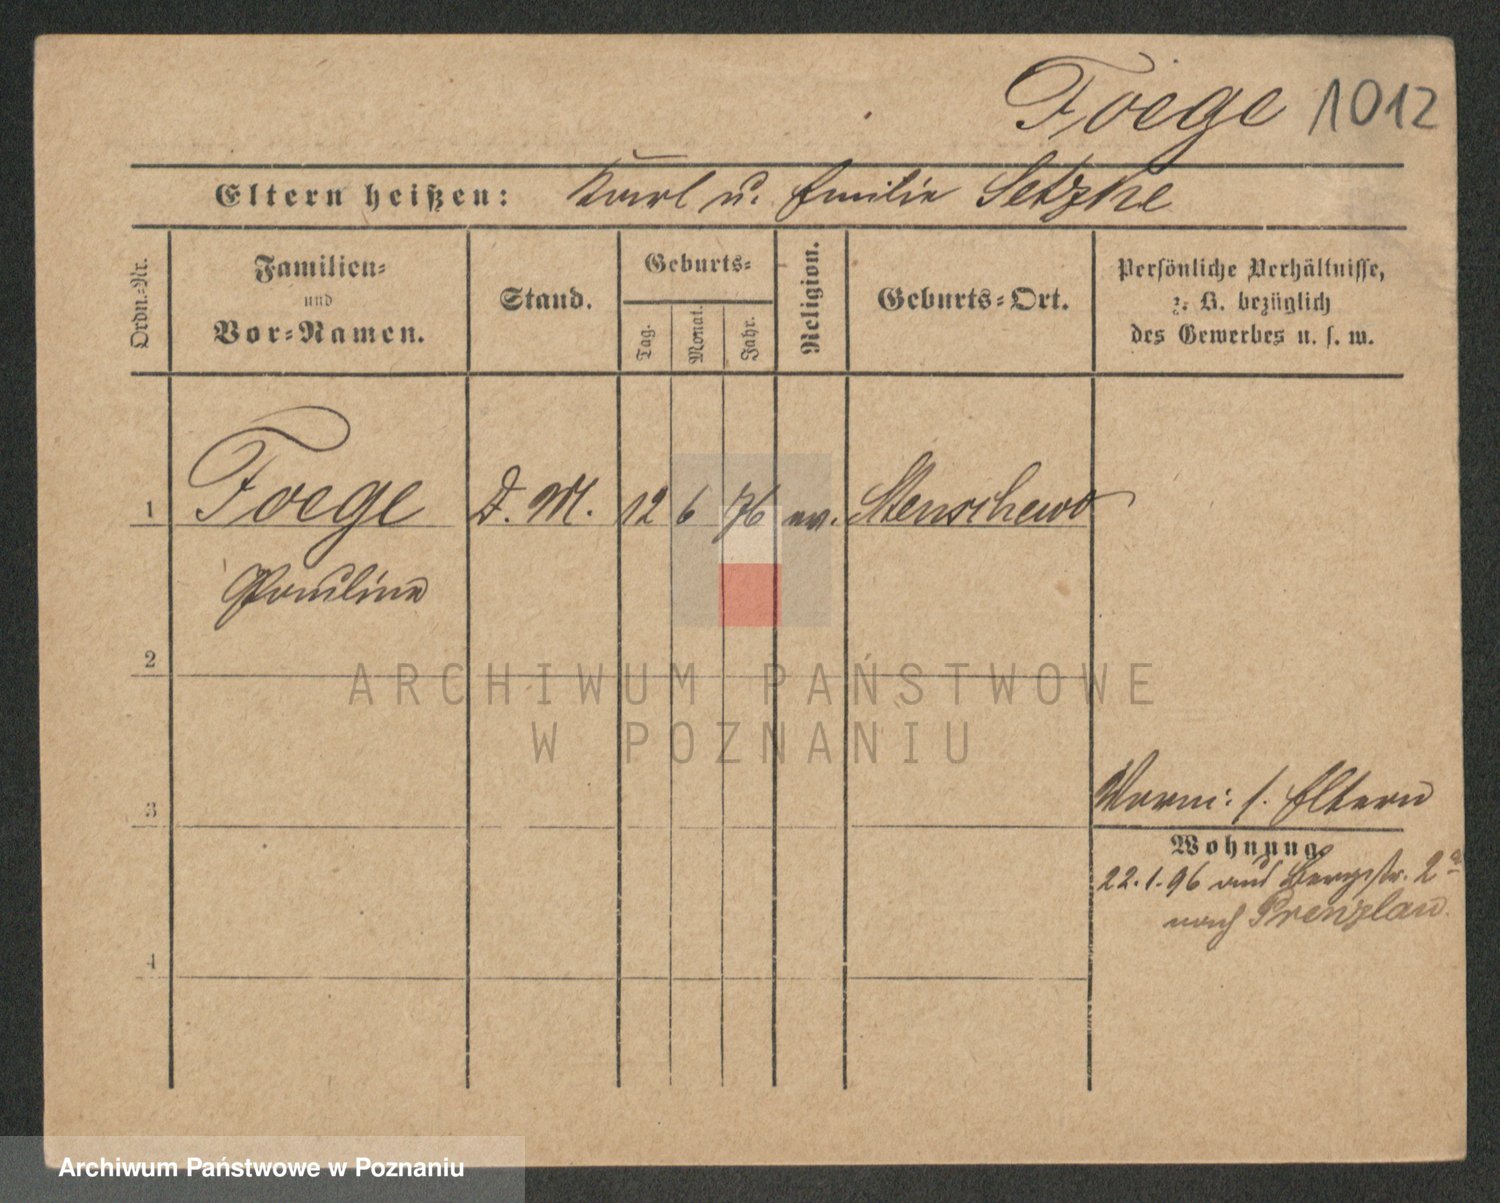 Foege 1012
Eltern heißen: Karl u. Emilie Setzke
Ordn.-Nr.
Familien-
und
Vor-Namen.
Stand.
Geburts-
Tag.
Monat.
Jahr.
Religion.
Geburts-Ort.
Persönliche Verhältnisse,
z. B. bezüglich
des Gewerbes u. s. w.
1 Foege D. M. 12 6 76 ev. Stenschewo
Pauline
2
ARCHIWUM PAŃSTWOWE
W POZNANIU
3
s. Eltern
Wohnung
22.1.96 aus Bergstr. 2a
nach Prenzlau.
4
Archiwum Państwowe w Poznaniu